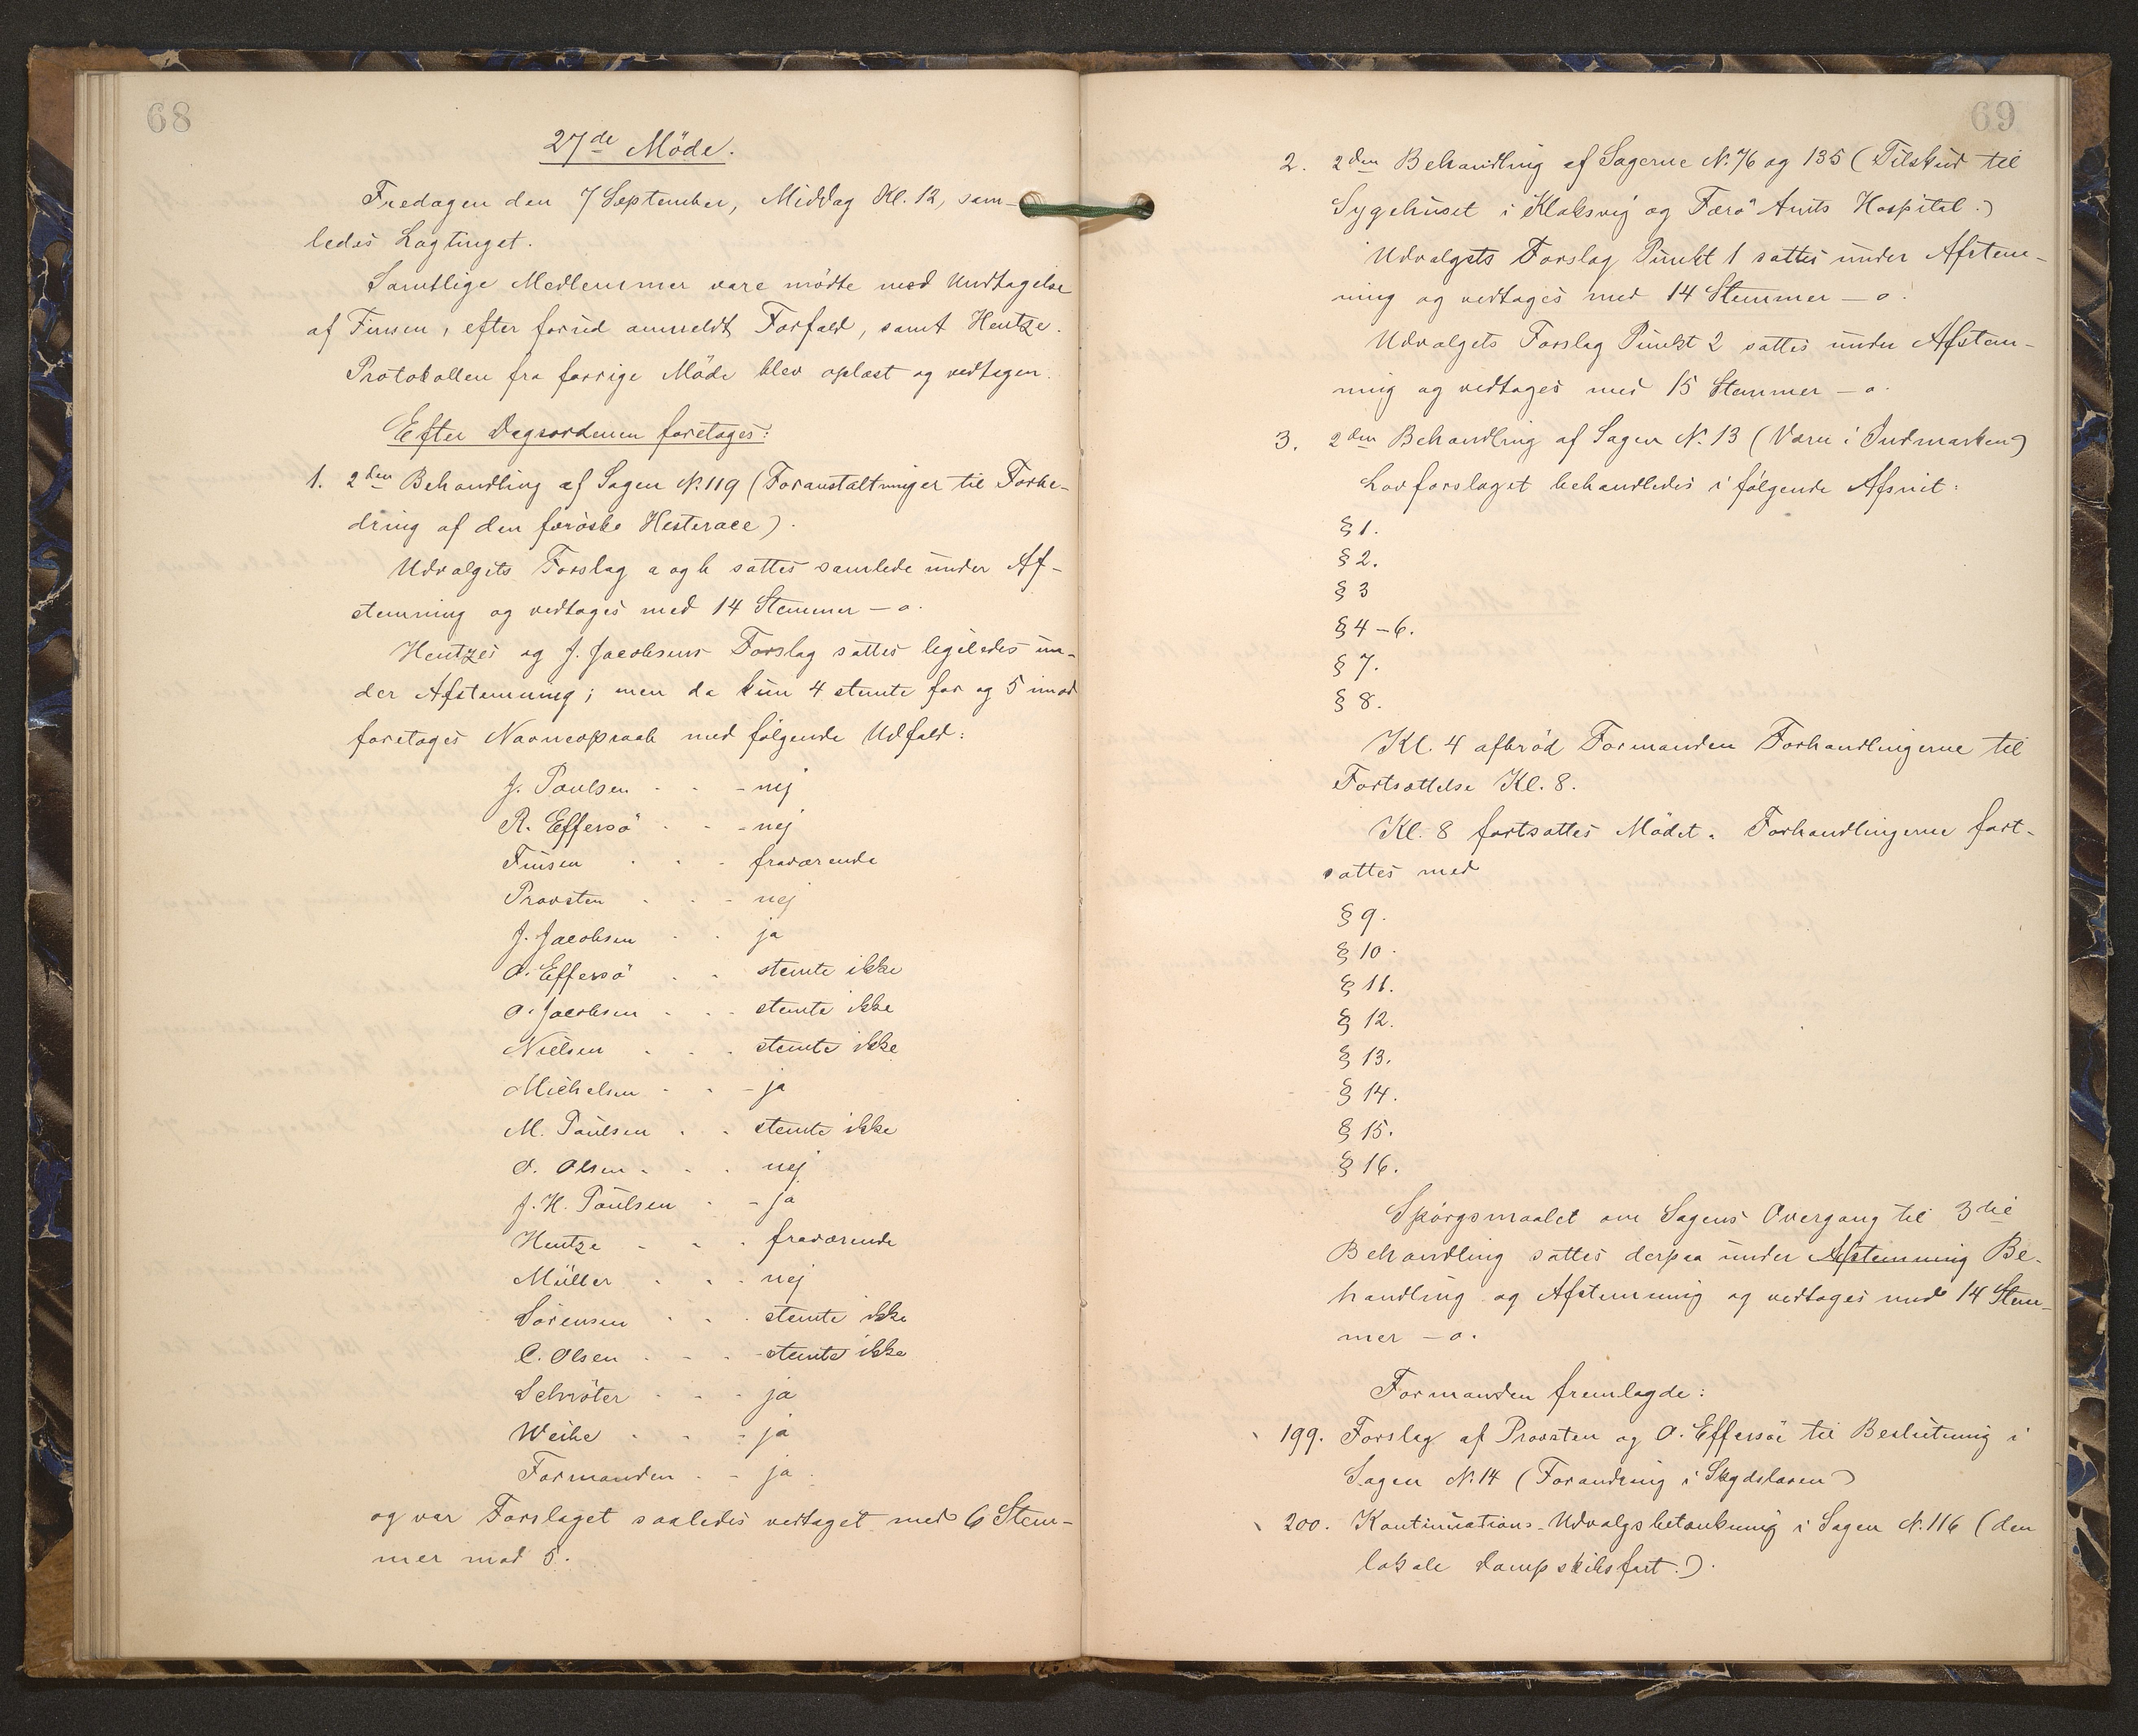 68
27de Möde.
Fredagen den 7 September, Middag Kl. 12, sam-
ledes Lagtinget.
Samtlige Medlemmer vare mödte med Undtagelse
af Finsen, efter forud anmeldt Forfald, samt Hentze.
Protokollen fra forrige Möde blev oplæst og vedtagen.
Efter Dagsordenen foretoges:
1. 2den Behandling af Sagen N. 119 (Foranstaltninger til Forbe-
dring af den færöske Hesterace).
Udvalgets Forslag a og b sattes samlede under Af-
stemning og vedtoges med 14 Stemmer – o.
Hentzes og J. Jacobsens Forslag sattes ligeledes un-
der Afstemning; men da kun 4 stemte for og 5 imod
foretoges Navneopraab med følgende Udfald:
J. Poulsen - - - nej
R. Effersö - - - nej
Finsen - - - fraværende
Provsten - - - nej
J. Jacobsen - - ja
O. Effersö - - stemte ikke
O. Jacobsen - - - stemte ikke
Nielsen - - - stemte ikke
Michelsen - - - ja
M. Poulsen - - stemte ikke
O. Olsen - - - nej
J. H. Poulsen - - ja
Hentze - - - fraværende
Müller - - - nej
Sörensen - - - stemte ikke
C. Olsen - - - stemte ikke
Schröter - - - ja
Weihe - - - ja
Formanden - - ja.
og var Forslaget saaledes vedtaget med 6 Stem-
mer mod 5.
69
2. 2den Behandling af Sagerne N. 76 og 135 (Tilskud til
Sygehuset i Klaksvig og Færö Amts Hospital.)
Udvalgets Forslag Punkt 1 sattes under Afstem-
ning og vedtoges med 14 Stemmer – o.
Udvalgets Forslag Punkt 2 sattes under Afstem-
ning og vedtoges med 15 Stemmer – o.
3. 2den Behandling af Sagen N. 13 (Værn i Indmarken)
Lovforslaget behandledes i følgende Afsnit:
§ 1.
§ 2.
§ 3
§ 4 – 6.
§ 7.
§ 8.
Kl. 4 afbröd Formanden Forhandlingerne til
Fortsættelse Kl. 8.
Kl. 8 fortsattes Mödet. Forhandlingerne fort-
sattes med
§ 9.
§ 10.
§ 11.
§ 12.
§ 13.
§ 14.
§ 15.
§ 16.
Spörgsmaalet om Sagens Overgang til 3die
Behandling sattes derpaa under Afstemning Be-
handling og Afstemning og vedtoges med 14 Stem-
mer – o.
Formanden fremlagde:
199. Forslag af Provsten og O. Effersöe til Beslutning i
Sagen N. 14 (Forandring i Skydsloven)
200. Kontinuations-Udvalgsbetænkning i Sagen N. 116 (den
lokale Dampskibsfart.).